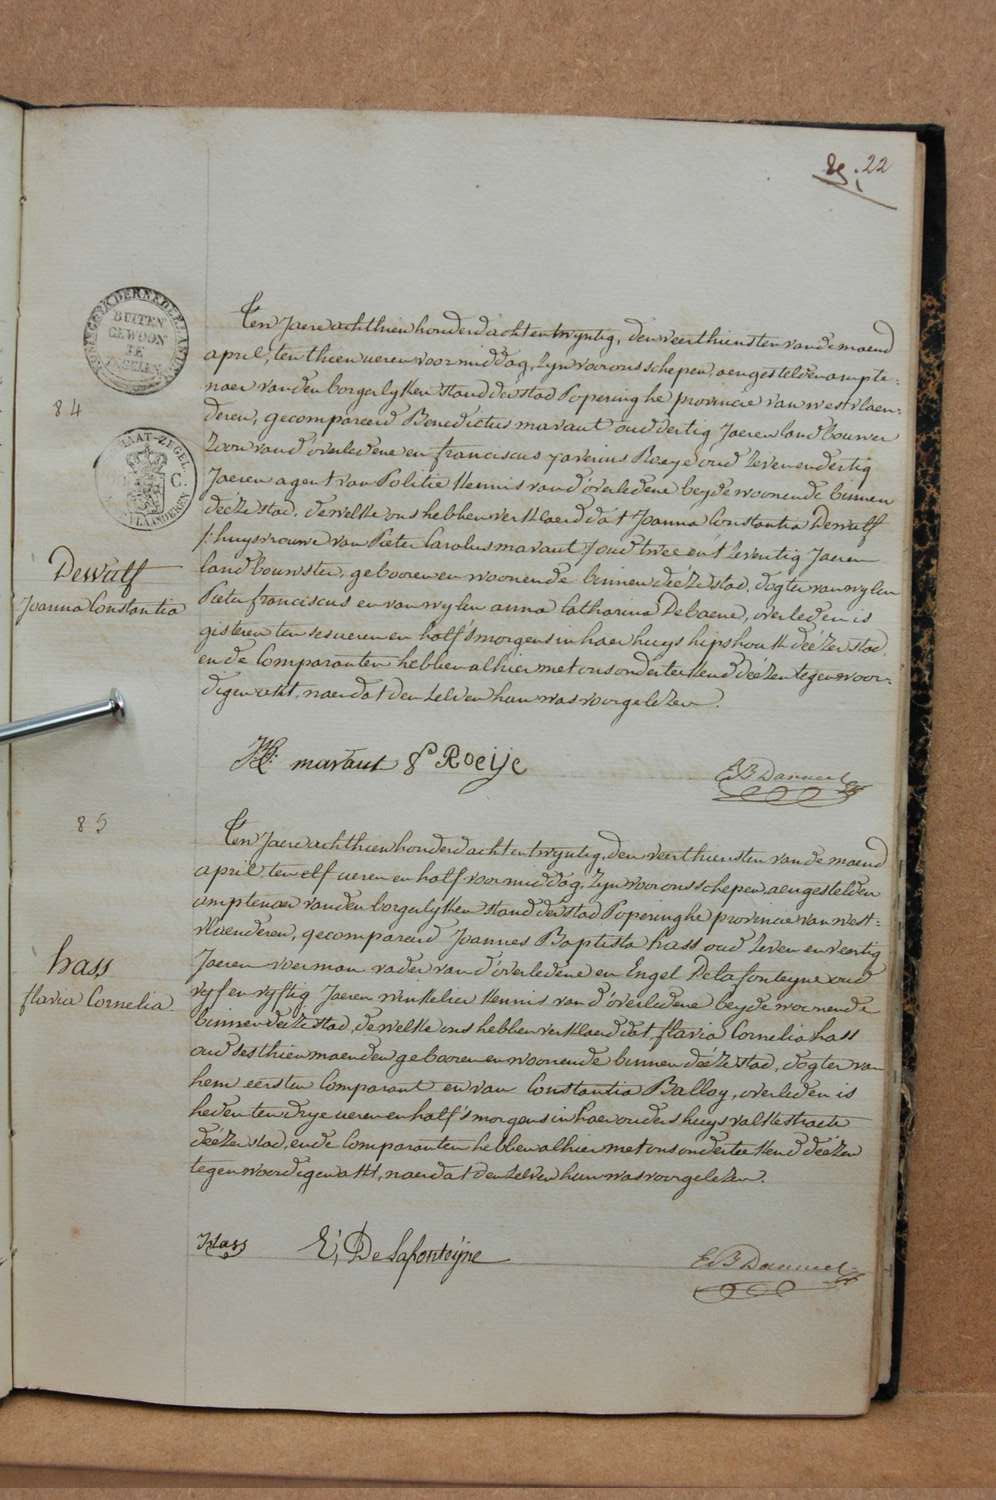 22
KONINGRYK DER NEDERLANDEN
BUITEN
GEWOON
TE
ZEGELEN
84
STAAT-ZEGEL
C.
VLAANDEREN
Dewatf
Joanna Constantia
Ten Jaere achthien honderd acht en twyntig, den veerthiensten van de maend
april, ten thien ueren voormiddag, zyn voor ons schepen, aengestelden ampte-
naer van den borgerlyken stand der stad Poperinghe provincie van westvlaen-
deren, gecompareerd Benedictus maraut oud dertig Jaeren landbouwer
Zoon van d'overledene en franciscus xaverius Roeye oud zevenendertig
Jaeren agent van Politie Kennis van d'overledene beyde woonende binnen
deéze stad, dewelke ons hebben verklaerd dat Joanna Constantia Dewatf
(:huysvrouwe van Pieter Carolus maraut) oud twee en t'zeventig Jaeren
landbouwster, gebooren en woonende binnen deéze stad, dogter van wylen
Pieter franciscus en van wylen anna Catharina Debaene, overleden is
gisteren ten ses ueren en half 's morgens in haer huys hipshoek deézer stad,
en de Comparanten hebben alhier met ons onderteekend deézen tegenwoor-
digen akt, naer dat den zelven hun was voorgelezen.
maraut Roeije
EB Danneel
85
hass
flavia Cornelia
Ten Jaere achthien honderd acht en twyntig, den veerthiensten van de maend
april, ten elf ueren en half voormiddag, zyn voor ons schepen, aengestelden
amptenaer van den borgerlyken stand der stad Poperinghe provincie van west-
vlaenderen, gecompareerd Joannes Baptista hass oud zeven en veertig
Jaeren voerman vader van d'overledene en Engel Delafonteyne oud
vyf en vyftig Jaeren Winkelier Kennis van d'overledene beyde woonende
binnen deéze stad, dewelke ons hebben verklaerd dat flavia Cornelia hass
oud sesthien maenden gebooren en woonende binnen deéze stad, dogter van
hem eersten Comparant en van Constantia Balloy, overleden is
heden ten drye ueren en half 's morgens in haer ouders huys valkestraete
deézer stad, en de Comparanten hebben alhier met ons onderteekend deézen
tegenwoordigen akt, naer dat den zelven hun was voorgelezen.
Hass E, De Lafonteÿne
EB Danneel